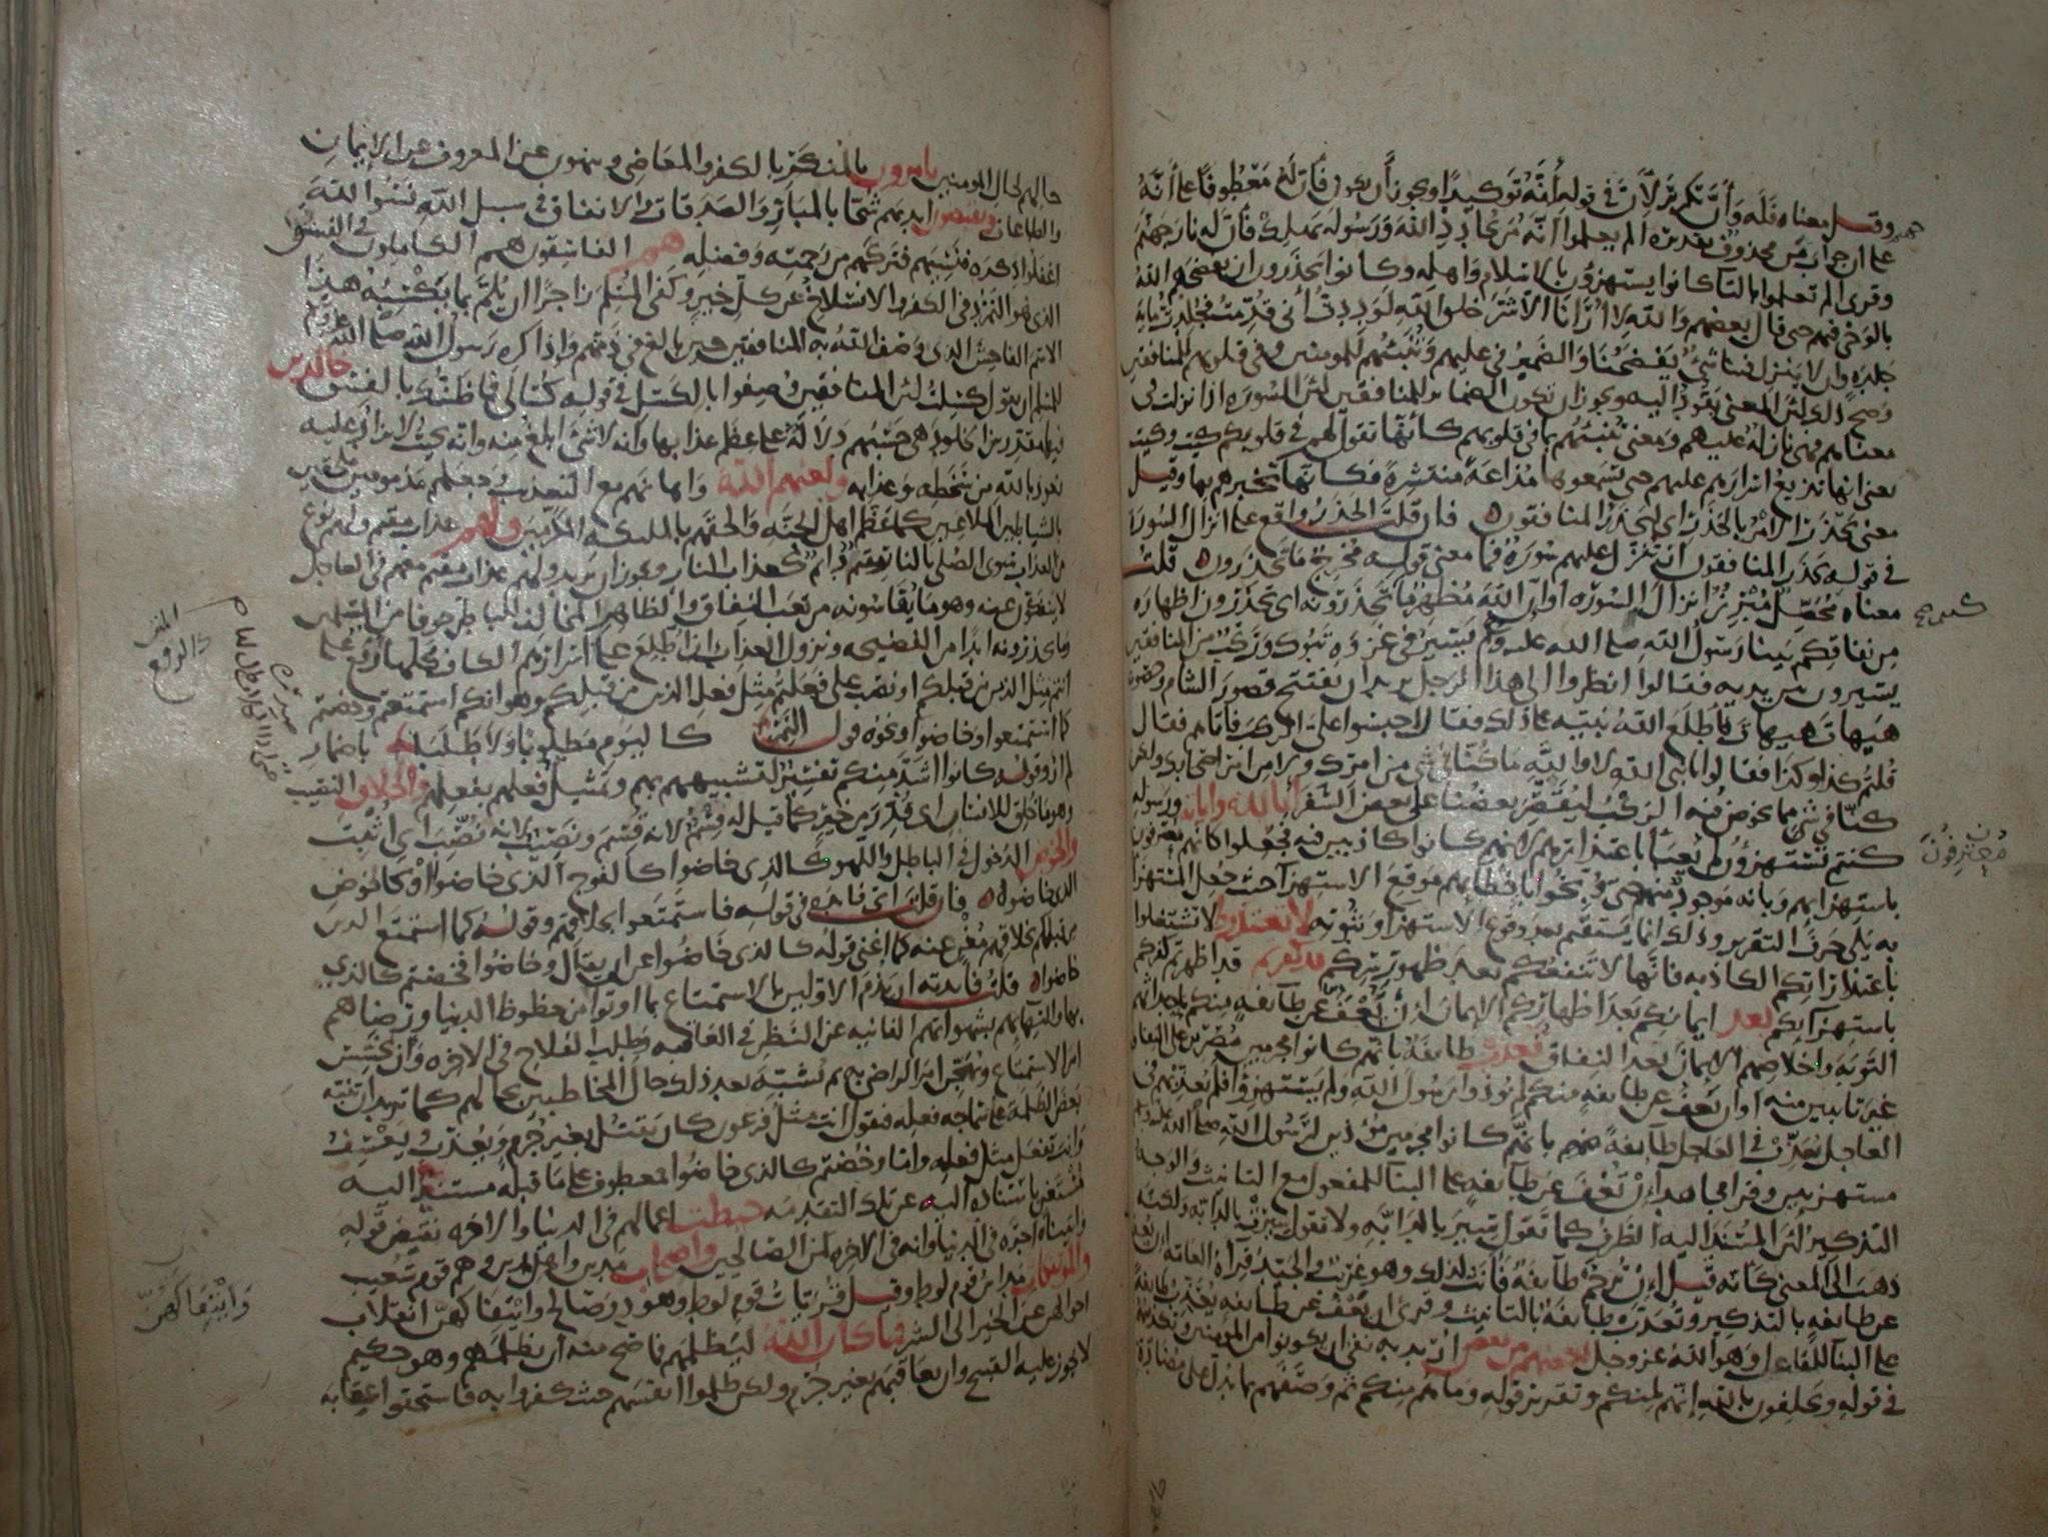 وقيل معناه فله وأن تكرير لأن في قوله أنه توكيدا ويجوز أن يكون فأن له معطوفا على أنه
على أن جواب من محذوف تقديره ألم يعلموا أنه من يحادد الله ورسوله يهلك فأن له نار جهنم
وقرئ ألم تعلموا بالتاء كانوا يستهزؤن بالاسلام وأهله وكانوا يحذرون ان يفضحهم الله
بالوحي فيهم حتى قال بعضهم والله لا أرانا الا شر خلق الله لوددت أني قدمت فجلدت مائة
جلدة وان لا ينزل فينا شئ يفضحنا والضمير في عليهم وتنبئهم للمومنين وفي قلوبهم للمنافقين
وصح ذلك لأن المعنى يقود إليه ويجوز ان تكون الضمائر للمنافقين لأن السورة اذا نزلت في
معناهم فهي نازلة عليهم ومعنى تنبئهم بما في قلوبهم كأنها تقول لهم في قلوبكم كيت وكيت
يعني انها تذيع اسرارهم عليهم حتى يسمعوها مذاعة منتشرة فكأنها تخبرهم بها وقيل
معنى يحذر الامر بالحذر اي ليحذر المنافقون فان قلت الحذر واقع على انزال السورة
في قوله يحذر المنافقون ان تنزل عليهم سورة فما معنى قوله مخرج ما تحذرون قلت
معناه محصل مبرز انزال السورة أو ان الله مظهر ما تحذرونه اي تحذرون اظهاره
من نفاقكم بينا رسول الله صلى الله عليه وسلم يسير في غزوة تبوك وركب من المنافقين
يسيرون بين يديه فقالوا انظروا الى هذا الرجل يريد ان يفتتح قصور الشام وحصونه
هيهات هيهات فأطلع الله نبيه على ذلك فقال احبسوا علي الركب فأتاهم فقال
قلتم كذا وكذا فقالوا يا نبي الله لا والله ما كنا في شئ من امرك ولا من امر اصحابك ولكن
كنا في شئ مما يخوض فيه الركب ليقصر بعضنا على بعض السفر أبالله وآياته ورسوله
كنتم تستهزؤن لم يعبأ باعتذارهم لانهم كانوا كاذبين فيه فجعلوا كأنهم معترفون
باستهزائهم وبانه موجود منهم حتى وبخوا باخطائهم موقع الاستهزاء حيث جعل المستهزأ
به يلي حرف التقرير وذلك انما يستقيم بعد وقوع الاستهزاء وثبوته لا تعتذروا لا تشتغلوا
باعتذاراتكم الكاذبة فانها لا تنفعكم بعد ظهور سركم قد كفرتم قد اظهرتم كفركم
باستهزائكم بعد ايمانكم بعد اظهاركم الايمان ان نعف عن طائفة منكم باحداثهم
التوبة واخلاصهم الايمان بعد النفاق نعذب طائفة بانهم كانوا مجرمين مصرين على النفاق
غير تائبين منه او ان نعف عن طائفة منكم لم يوذوا رسول الله ولم يستهزؤا فلم نعذبهم في
العاجل نعذب في العاجل طائفة منهم بانهم كانوا مجرمين موذين لرسول الله صلى الله عليه وسلم
مستهزئين وقرأ مجاهد إن تعف عن طائفة على البناء للمفعول مع التانيث والوجه
التذكير لأن المسند اليه الظرف كما تقول سير بالدابة ولا تقول سيرت بالدابة ولكنه
ذهب الى المعنى كأنه قيل إن ترحم طائفة فأنث لذلك وهو غريب والجيد قراة العامة ان يعف
عن طائفة بالتذكير وتعذب طائفة بالتانيث وقرئ ان يعف عن طائفة يعذب طائفة
على البناء للفاعل وهو الله عز وجل بعضهم من بعض اريد به نفي ان يكونوا من المومنين وتكذيبهم
في قوله ويحلفون بالله إنهم لمنكم وتقرير قوله وما هم منكم ثم وصفهم بما يدل على مضادة
معترفون
حالهم لحال المومنين يامرون بالمنكر بالكفر والمعاصي وينهون عن المعروف عن الايمان
والطاعات ويقبضون ايديهم شحا بالمبار والصدقات والانفاق في سبيل الله نسوا الله
اغفلوا ذكره فنسيهم فتركهم من رحمته وفضله هم الفاسقون هم الكاملون في الفسق
الذي هو التمرد في الكفر والانسلاخ عن كل خير وكفى المسلم زاجرا ان يلم بما يكسبه هذا
الاسم الفاحش الذي وصف الله به المنافقين حين بالغ في ذمهم واذا كره رسول الله صلى الله عليه وسلم
للمسلم ان يقول كسلت لأن المنافقين وصفوا بالكسل في قوله كسالى فما ظنك بالفسق خالدين
فيها مقدرين الخلود هي حسبهم دلالة على عظم عذابها وانه لا شئ ابلغ منه وانه بحيث لا يزاد عليه
نعوذ بالله من سخطه وعذابه ولعنهم الله واهانهم مع التعذيب وجعلهم مذمومين ملحقين
بالشياطين الملاعين كما عظم اهل الجنة والحقهم بالملائكة المكرمين ولهم عذاب مقيم ولهم نوع
من العذاب سوى الصلي بالنار مقيم دائم كعذاب النار ويجوز ان يريد ولهم عذاب مقيم معهم في العاجل
لا ينفكون عنه وهو ما يقاسونه من تعب النفاق والظاهر المخالف للباطن خوفا من المسلمين
وما يحذرونه ابدا من الفضيحة ونزول العذاب ان اطلع على اسرارهم الكاف محلها رفع على
انتم مثل الذين من قبلكم او نصب على فعلتم مثل فعل الذين من قبلكم وهو انكم استمتعتم وخضتم
كما استمتعوا وخاضوا ونحوه قول النمر كاليوم مطلوبا ولا طلبا باضمار
لم ار وقوله كانوا اشد منكم تفسير لتشبيههم بهم وتمثيل فعلهم بفعلهم والخلاق النصيب
وهو ما خلق للانسان اي قدر من خير كما قيل له قسم لانه قسم ونصيب لانه نصب اي اثبت
والخوض الدخول في الباطل واللهو كالذي خاضوا كالفوج الذي خاضوا او كالخوض
الذي خاضوا فان قلت اي فائدة في قوله فاستمتعوا بخلاقهم وقوله كما استمتع الذين
من قبلكم بخلاقهم مغن عنه كما اغنى قوله كالذي خاضوا عن ان يقال وخاضوا فخضتم كالذي
خاضوا قلت فائدته ان يذم الاولين بالاستمتاع بما اوتوا من حظوظ الدنيا ورضاهم
بها والتهائهم بشهواتهم الفانية عن النظر في العاقبة وطلب الفلاح في الاخرة وان يخسس
امر الاستمتاع ويهجن امر الراضي به ثم يشبه بعد ذلك حال المخاطبين بحالهم كما تريد ان تنبه
بعض الظلمة على سماجة فعله فتقول انت مثل فرعون كان يقتل بغير جرم ويعذب ويعسف
وانت تفعل مثل فعله واما وخضتم كالذي خاضوا معطوف على ما قبله مستند اليه
مستغن باستناده اليه عن تلك التقدمة حبطت اعمالهم في الدنيا والاخرة نقيض قوله
واتيناه اجره في الدنيا وانه في الاخرة لمن الصالحين واصحاب مدين واهل مدين وهم قوم شعيب
والموتفكات مدائن قوم لوط وقيل قريات قوم لوط وهود وصالح وائتفاكهن انقلاب
احوالهن عن الخير الى الشر فما كان الله ليظلمهم فما صح منه ان يظلمهم وهو حكيم
لا يجوز عليه القبيح وان يعاقبهم بغير جرم ولكن ظلموا انفسهم حيث كفروا به فاستحقوا عقابه
وائتفاكهن